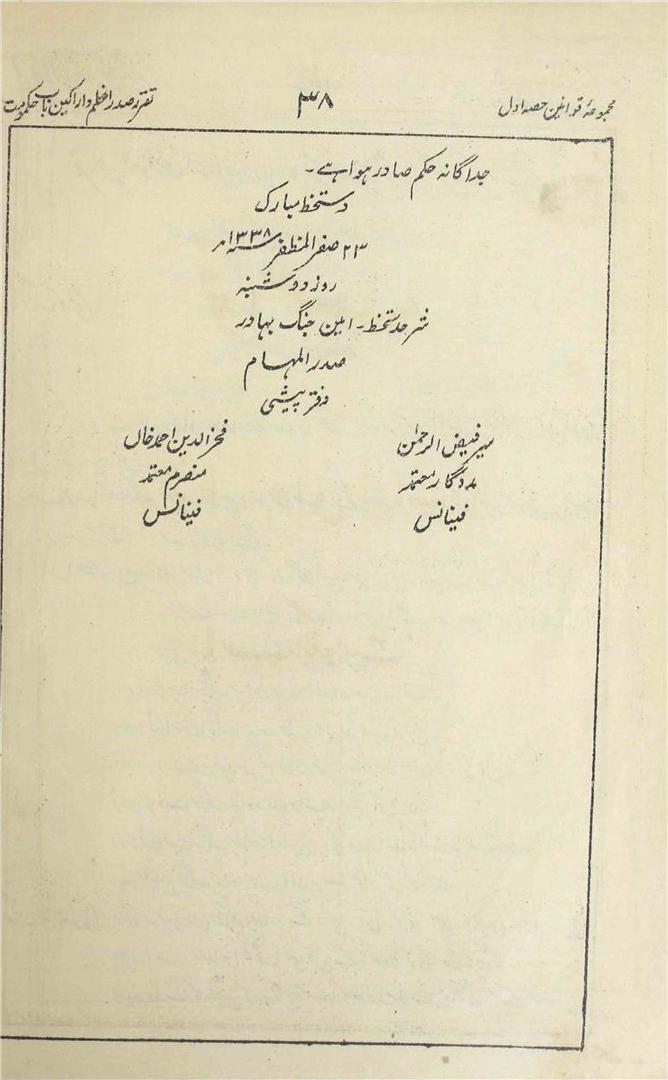 مجموعۂ قوانین حصہ اول
۳۸
تقرر صدر اعظم و اراکین باب حکومت
جداگانہ حکم صادر ہوا ہے۔
دستخط مبارک
۲۳ صفر المظفر ۱۳۳۸ھ
روز دوشنبہ
شرحدستخط۔ امین جنگ بہادر
صدر المہام
دفتر پیشی
میر فیض الرحمٰن
مددگار معتمد
فینانس
فخر الدین احمد خاں
منصرم معتمد
فینانس